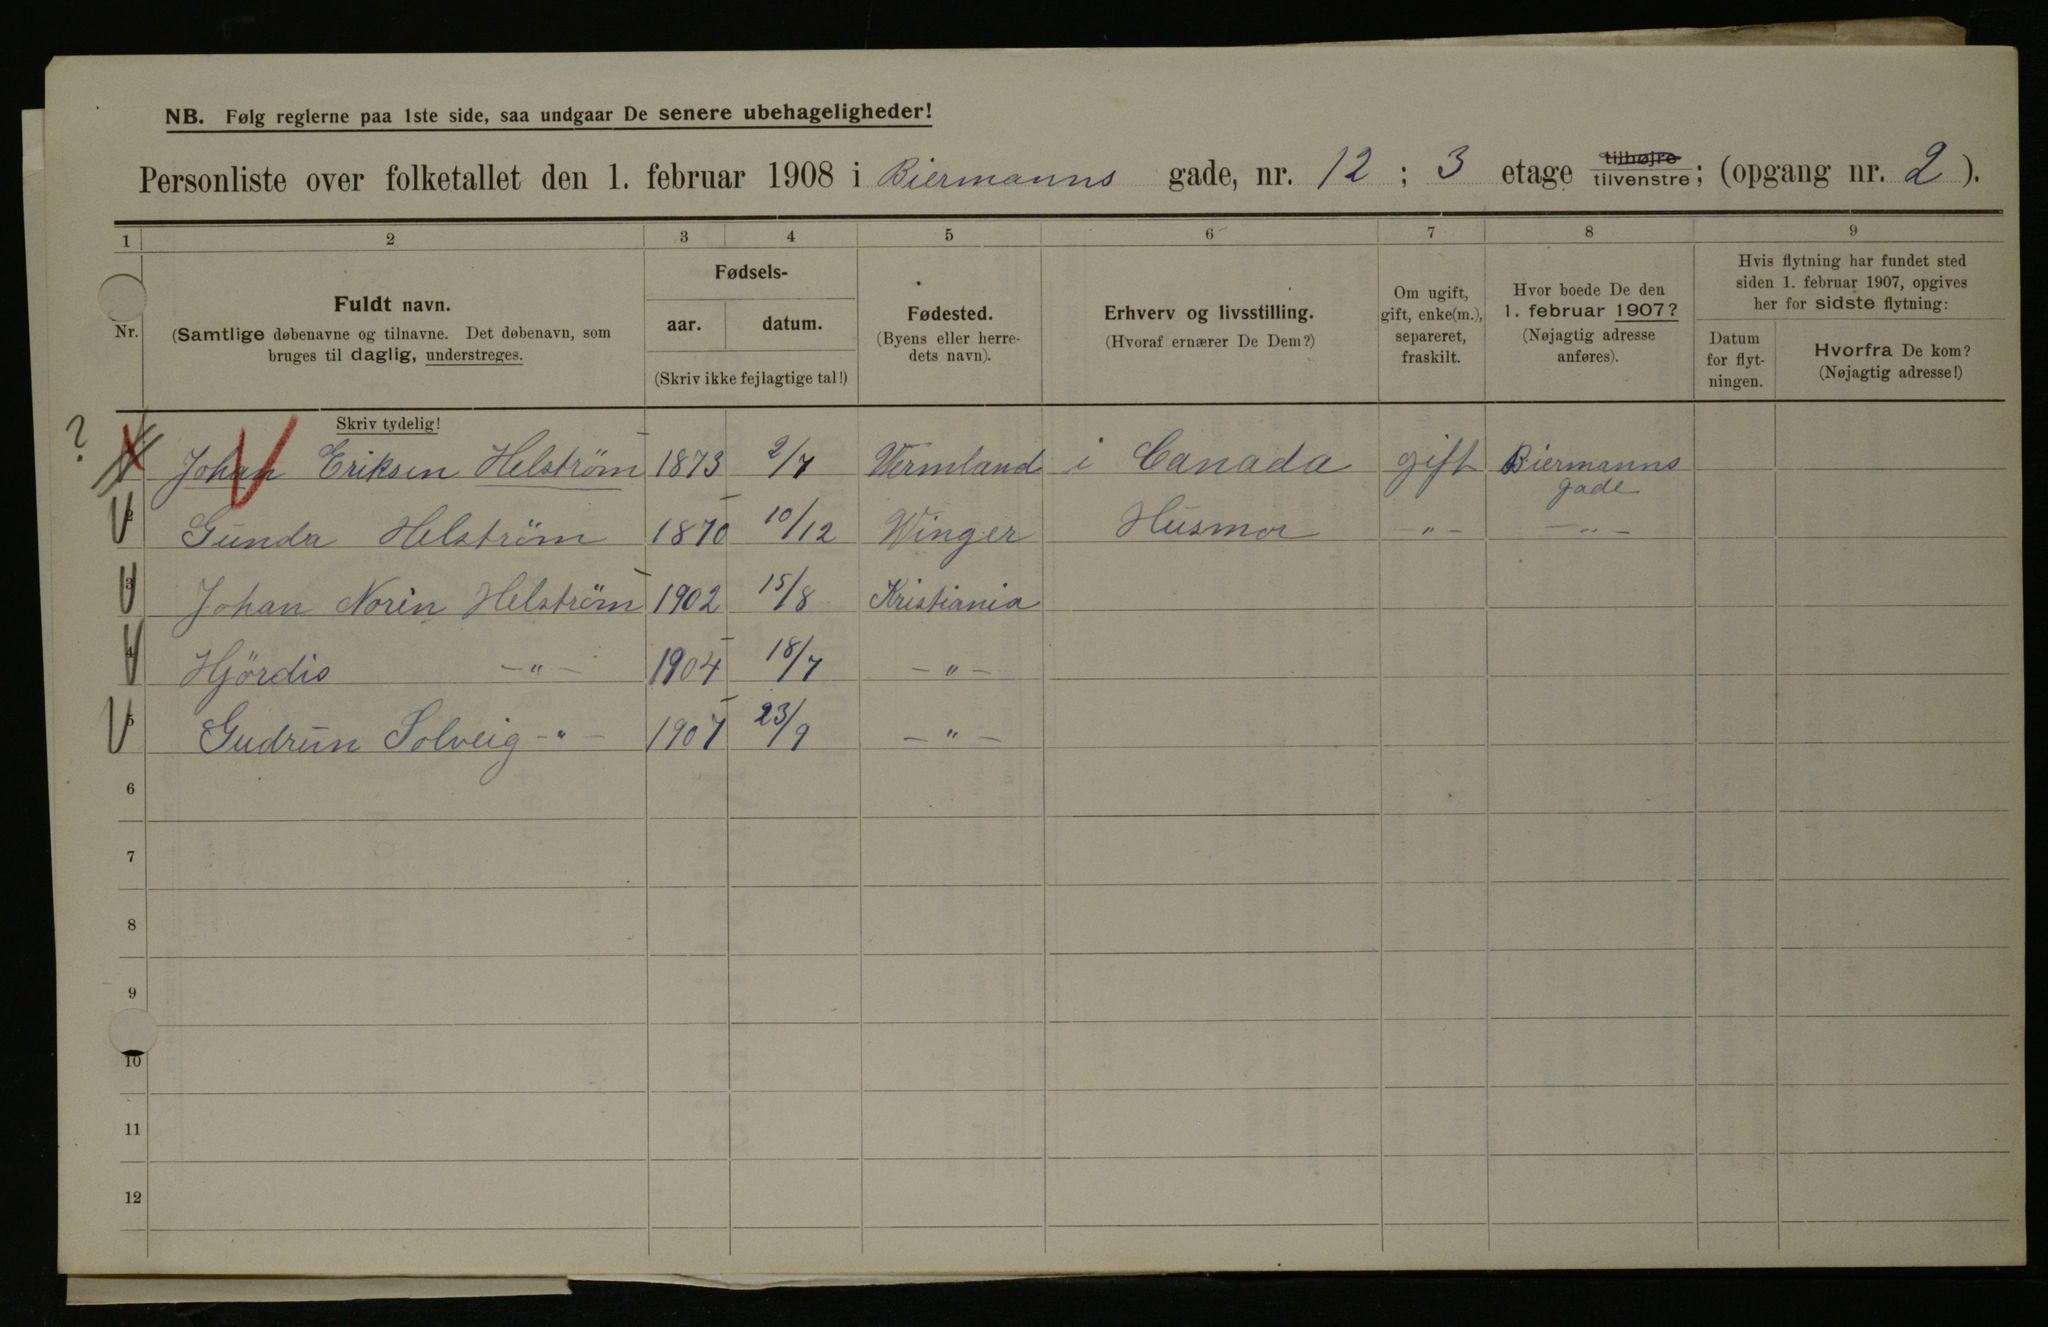 NB. Følg reglerne paa 1ste side, saa undgaar De senere ubehageligheder!
Personliste over folketallet den 1. februar 1908 i Biermanns gade, nr. 12 ; 3 etage tilhøjre tilvenstre; (opgang nr. 2 ).
1 2 3 4 5 6 7 8 9
Nr.
Fuldt navn.
(Samtlige døbenavne og tilnavne. Det døbenavn, som
bruges til daglig, understreges.
Skriv tydelig!
Fødsels-
aar. datum.
(Skriv ikke fejlagtige tal!)
Fødested.
(Byens eller herre-
dets navn).
Erhverv og livsstilling.
(Hvoraf ernærer De Dem?)
Om ugift,
gift, enke(m.),
separeret,
fraskilt.
Hvor boede De den
1. februar 1907?
(Nøjagtig adresse
anføres).
Hvis flytning har fundet sted
siden 1. februar 1907, opgives
her for sidste flytning:
Datum
for flyt-
ningen.
Hvorfra De kom?
(Nøjagtig adresse!)
? Johan Eriksen Helström 1873 2/7 Vermland i Canada gift Biermanns
gade
2 Gunda Helström 1870 10/12 Winger Husmor -"- -"-
3 Johan Norin Helström 1902 15/8 Kristiania
4 Hjördis -"- 1904 18/7 -"-
5 Gudrun Solveig -"- 1907 23/9 -"-
6
7
8
9
10
11
12